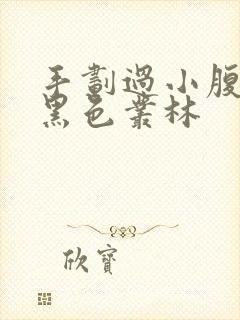 手劃過小腹
黑色叢林
欣寶